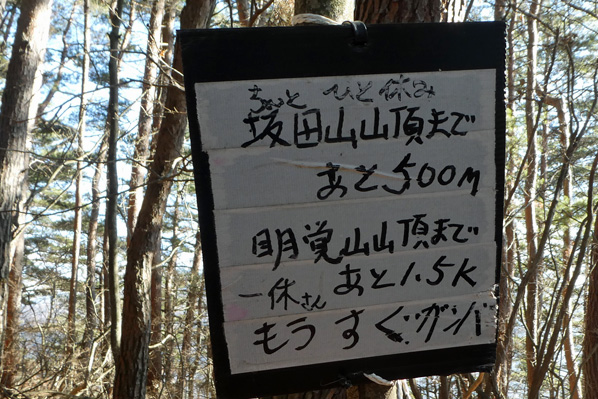 ちょっと ひと休み
坂田山山頂まで
あと500m
明覚山山頂まで
一休さん あと1.5K
もうすぐガンバ